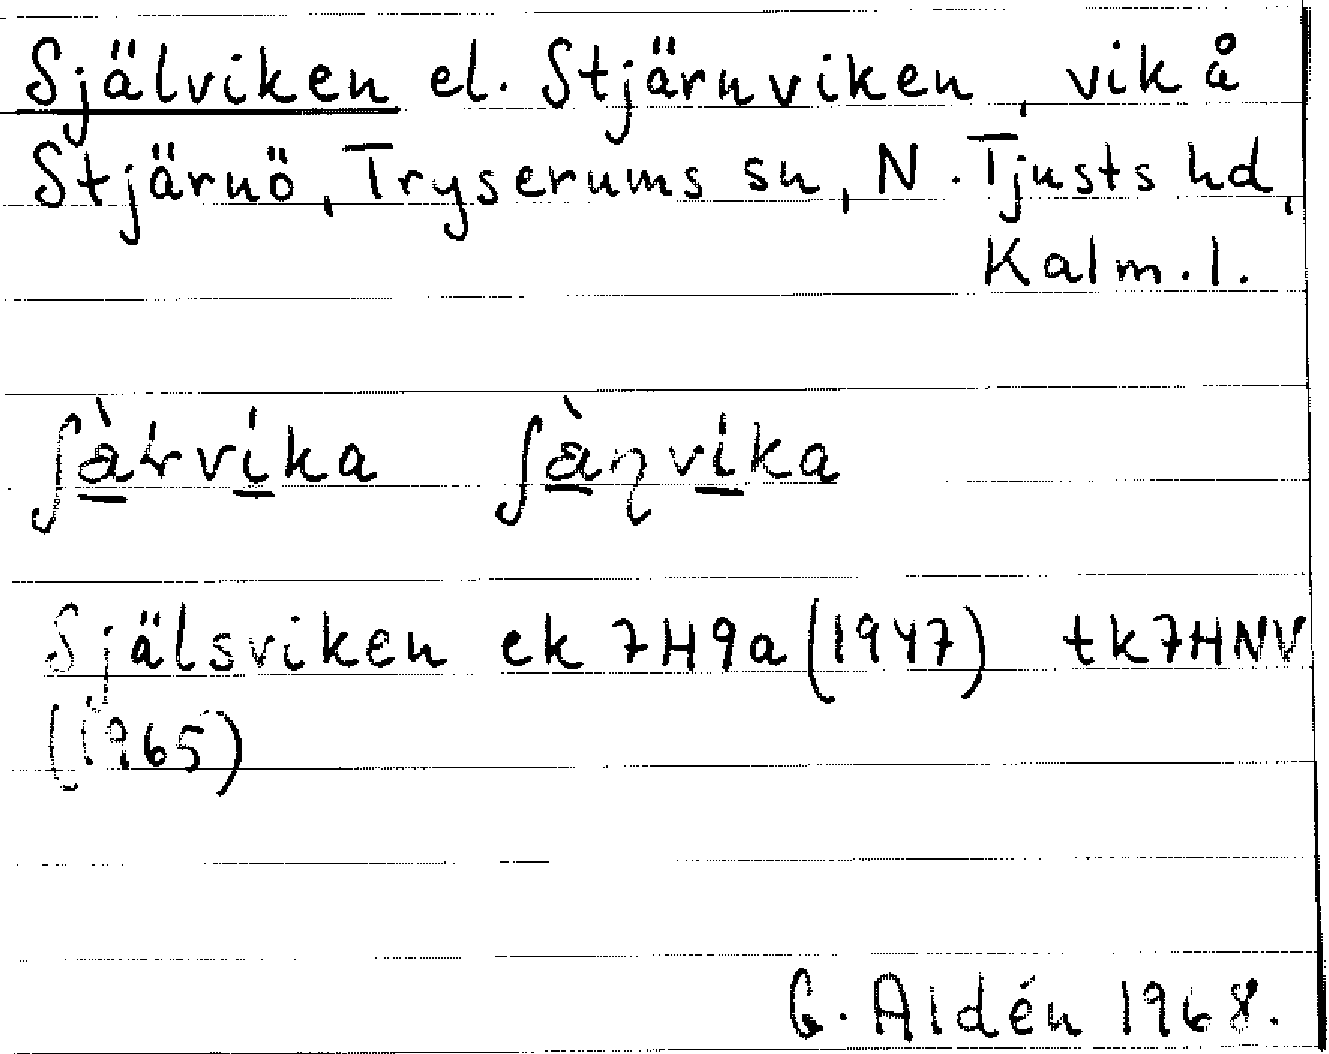 Själviken el. Stjärnviken, vik å
Stjärnö, Tryserums sn, N. Tjusts hd,
Kalm. l.
Själsviken ek 7H9a (1947) tk7HNV
(1965)
G. Aldén 1968.